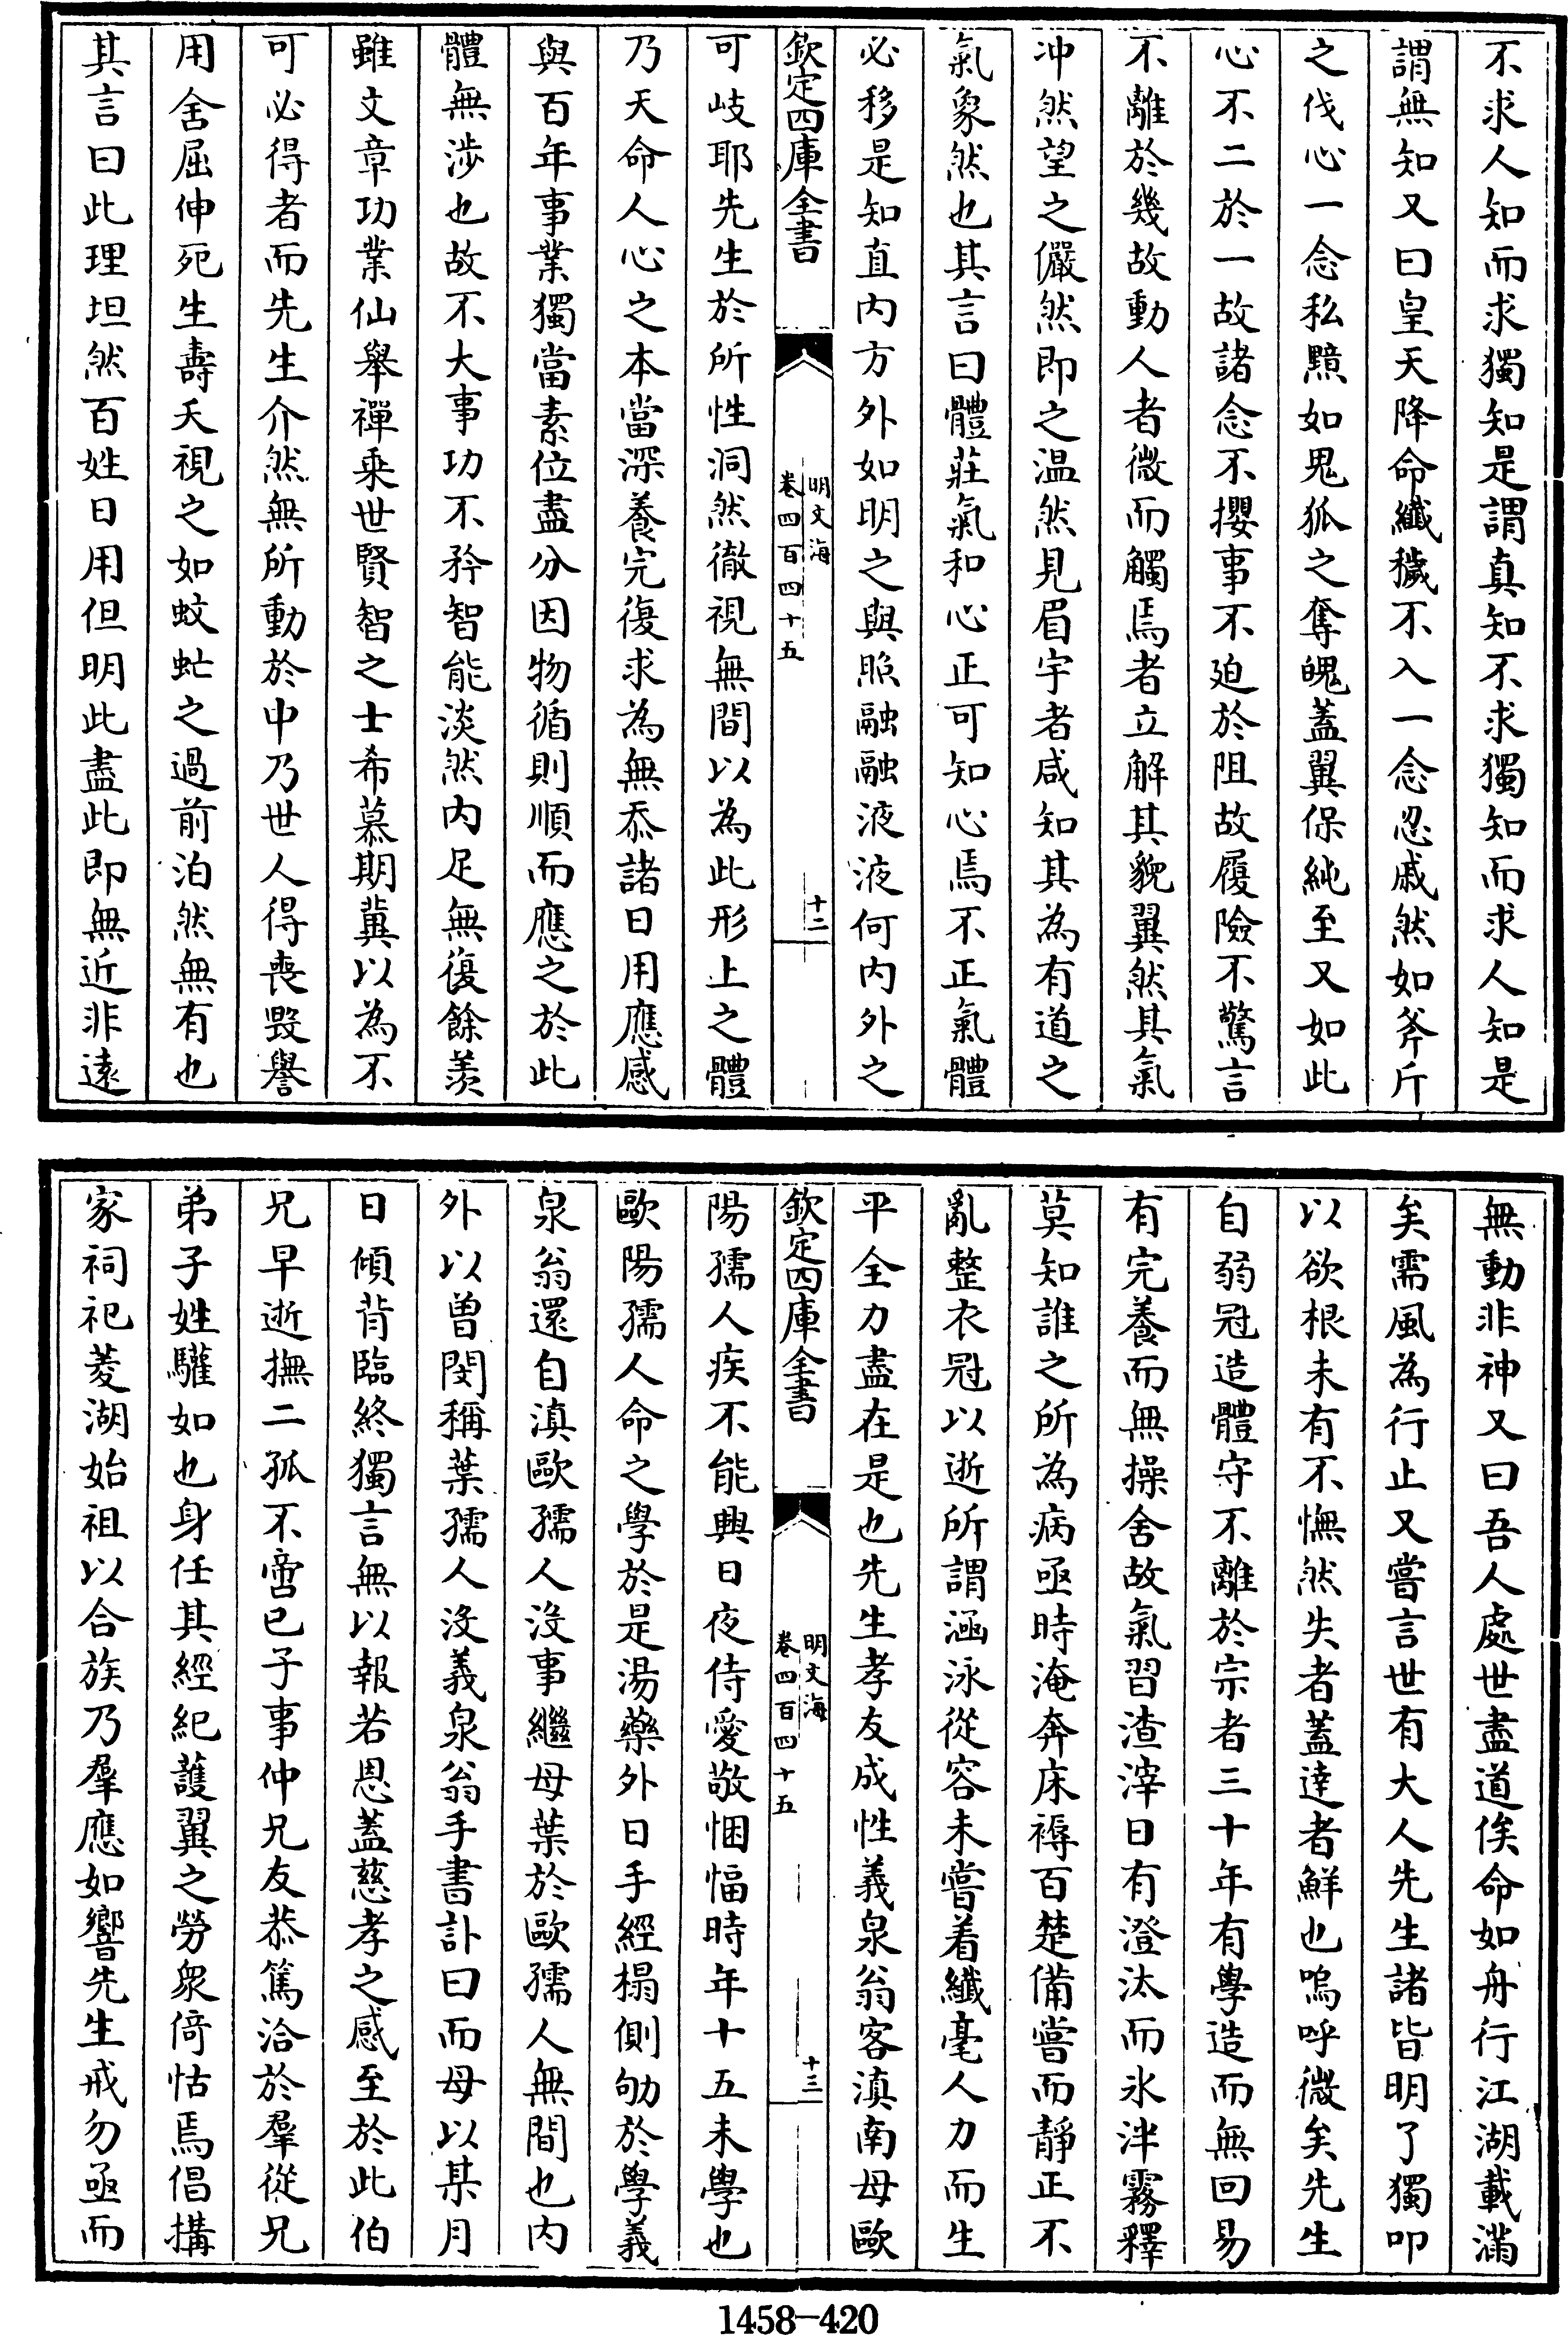 不求人知而求獨知是謂真知不求獨知而求人知是
謂無知又曰皇天降命纖穢不入一念忍戚然如斧斤
之伐心一念私黯如鬼狐之奪魄蓋翼保純至又如此
心不二於一故諸念不攖事不廹於阻故履險不驚言
不離於幾故動人者微而觸焉者立解其貌翼然其氣
冲然望之儼然即之温然見眉宇者咸知其為有道之
氣象然也其言曰體莊氣和心正可知心焉不正氣體
必移是知直内方外如明之與照融融液液何内外之
欽定四庫全書
明文海
卷四百四十五
十二
可岐耶先生於所性洞然徹視無間以為此形上之體
乃天命人心之本當深養完復求為無忝諸日用應感
與百年事業獨當素位盡分因物循則順而應之於此
體無涉也故不大事功不矜智能淡然内足無復餘羨
雖文章功業仙舉禪乘世賢智之士希慕期冀以為不
可必得者而先生介然無所動於中乃世人得喪毀譽
用舍屈伸死生壽夭視之如蚊虻之過前泊然無有也
其言曰此理坦然百姓日用但明此盡此即無近非遠
無動非神又曰吾人處世盡道俟命如舟行江湖載滿
矣需風為行止又嘗言世有大人先生諸皆明了獨叩
以欲根未有不憮然失者蓋達者鮮也嗚呼微矣先生
自弱冠造體守不離於宗者三十年有學造而無回易
有完養而無操舍故氣習渣滓日有澄汰而氷泮霧釋
莫知誰之所為病亟時淹奔床褥百楚備嘗而靜正不
亂整衣冠以逝所謂涵泳從容未嘗着纖毫人力而生
平全力盡在是也先生孝友成性義泉翁客滇南母歐
欽定四庫全書
明文海
卷四百四十五
十三
陽孺人疾不能興日夜侍愛敬悃愊時年十五未學也
歐陽孺人命之學於是湯藥外日手經榻側劬於學義
泉翁還自滇歐孺人沒事繼母葉於歐孺人無間也内
外以曾閔稱葉孺人沒義泉翁手書訃曰而母以某月
日傾背臨終獨言無以報若恩蓋慈孝之感至於此伯
兄早逝撫二孤不啻已子事仲兄友恭篤洽於羣從兄
弟子姓驩如也身任其經紀護翼之勞衆倚怙焉倡搆
家祠祀菱湖始祖以合族乃羣應如響先生戒勿亟而
1458-420